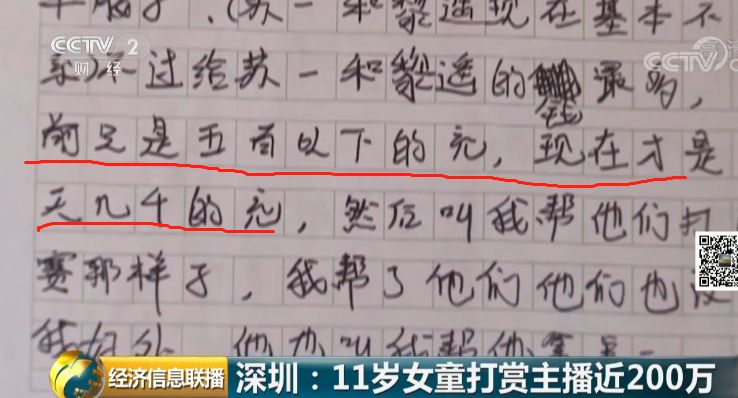 CCTV 2
财经
CCTV
(苏一和黎遥现在基本不
过给苏一和黎遥的钱最多,
是五百以下的充,现在才是
几千的充,然后叫我帮他们打
赛那样子,我帮了他们他们也没
叫我帮他
经济信息联播
深圳:11岁女童打赏主播近200万